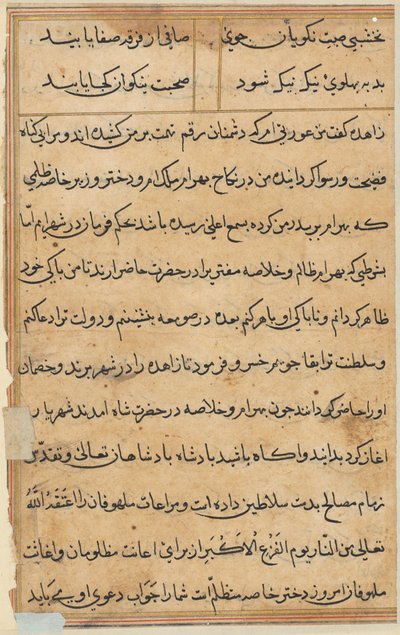 نخشبی صحبت نکویان جوی صافی از فرقد صفا یابید
بد به پهلوی نیک نیک شود صحبت نیکوان کجا یابند
زاهده گفت من عورتی ام که دشمنان رقم تهمت بر من کشیده اند و مرا بی گناه
فضیحت و رسوا گردانیده من در نکاح بهرام ملک ام و دختر وزیر خاصه ظلمی
که بهرام بر پدر من کرده بسمع اعلی رسیده باشد بحکم فرمان در شهر ایم اما
بشرطی که بهرام ظالم و خلاصه مفتر یرا در حضرت حاضر ارند تا من پاکی خود
ظاهر گردانم و ناپاکی او باهر کنم بعده در صومعه بنشینم و دولت ترا دعا کنم
و سلطنت ترا بقا جویم خسرو فرمود تا زاهده را در شهر برند و خصمان
او را حاضر گردانند چون بهرام و خلاصه در حضرت شاه امدند شهریار
اغاز کرد بدانید و اگاه باشید پادشاه پادشاهان تعالی و تقدس
زمام مصالح بدست سلاطین داده است و مراعات ملهوفان را اعتقه الله
تعالی من النار یوم الفزع الاکبر از برای اعانت مظلومان و اغاثت
ملهوفان امروز دختر خاصه متظلم است شما را جواب دعوی او می باید